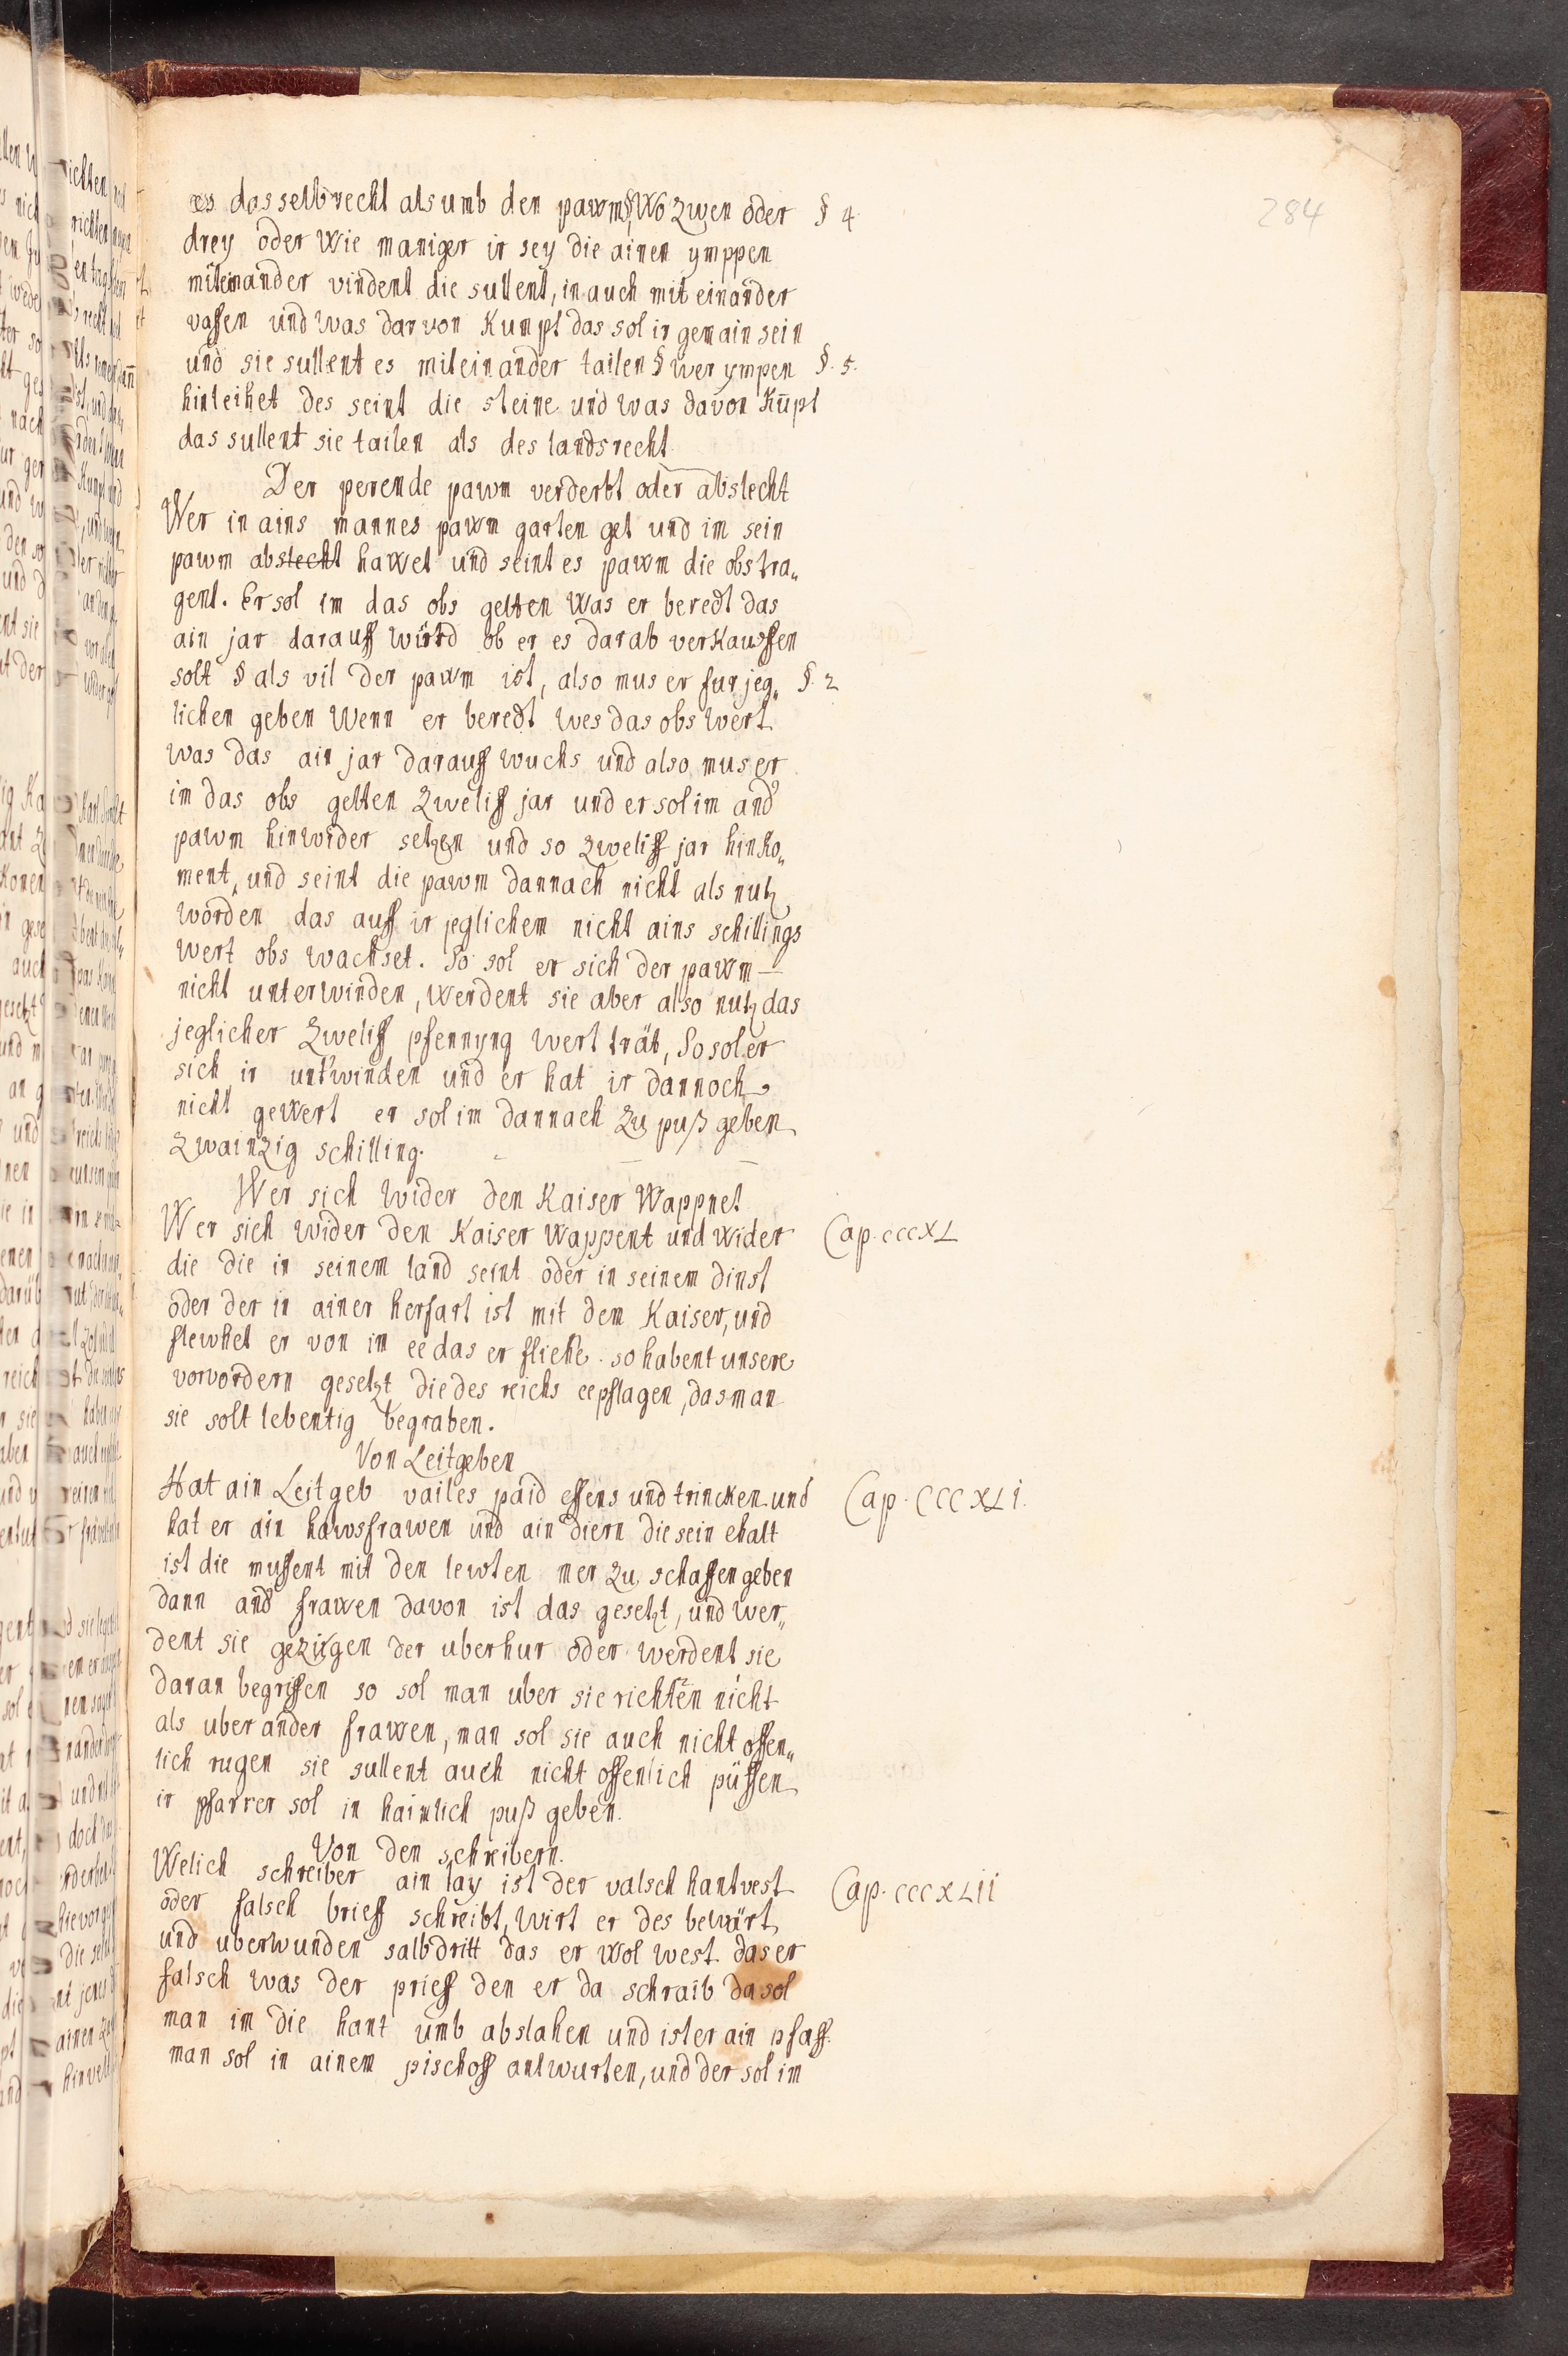 284
es das selb recht als umb den pawm § Wo zwen oder § 4
drey oder Wie maniger ir sey die ainen ymppen
miteinander vindent die sullent, in auch mit einander
vassen und was darvon Kumpt das sol ir gemain sein
und sie sullent es miteinander tailen § wer ympen §. 5.
hinleihet des seint die steine und was davon Kūpt
das sullent sie tailen als des landsrecht
Der perende pawm verderbt oder abslecht
Wer in ains mannes pawm garten get und im sein
pawm abslecht hawet und seint es pawm die obs tra„
gent. Er sol im das obs gelten Was er beredt das
ain jar darauff wurd ob er es darab verkauffen
solt § als vil der pawm ist, also mus er fur jeg„ §. 2
lichen geben Wenn er beredt wes das obs wert
was das ain jar darauff wuchs und also mus er
im das obs gelten zweliff jar und er sol im and̕
pawm hinwider setzen und so zweliff jar hinko„
ment, und seint die pawm dannach nicht als nutz
worden das auff ir jeglichem nicht ains schillings
wert obs wachset. So sol er sich der pawm —
nicht unterwinden, werdent sie aber also nutz das
jeglicher zweliff pfennyng wert trät, So sol er
sich ir unt̕winden und er hat ir dannoch
nicht gewert er sol im dannach zu puß geben
zwainzig schilling.
Wer sich wider den Kaiser Wappnet
Wer sich wider den Kaiser wappent und wider Cap. cccXL
die die in seinem land seint oder in seinem dinst
oder der in ainer herfart ist mit dem Kaiser, und
flewhet er von im ee das er fliehe. so habent unsere
vorvordern gesetzt die des reichs ee pflagen, das man
sie solt lebentig begraben.
Von Leitgeben
Hat ain Leitgeb vailes paid essens und trincken und Cap. CCCXLI.
hat er ain hawsfrawen und ain diern die sein ehalt
ist die mussent mit den lewten mer zu schaffen geben
dann and̕ frawen davon ist das gesetzt, und wer„
dent sie gezigen der uberhur oder werdent sie
daran begriffen so sol man uber sie richten nicht
als uber ander frawen, man sol sie auch nicht offen„
lich rugen sie sullent auch nicht offenlich püssen
ir pfarrer sol in haimlich puß geben.
Von den schreibern.
Welich schreiber ain lay ist der valsch hantvest Cap. cccXLII
oder falsch brieff schreibt, wirt er des bewärt
und uberwunden salbdritt das er wol west das er
falsch was der prieff den er da schraib da sol
man im die hant umb abslahen und ist er ain pfaff.
man sol in ainem pischoff antwurten, und der sol im